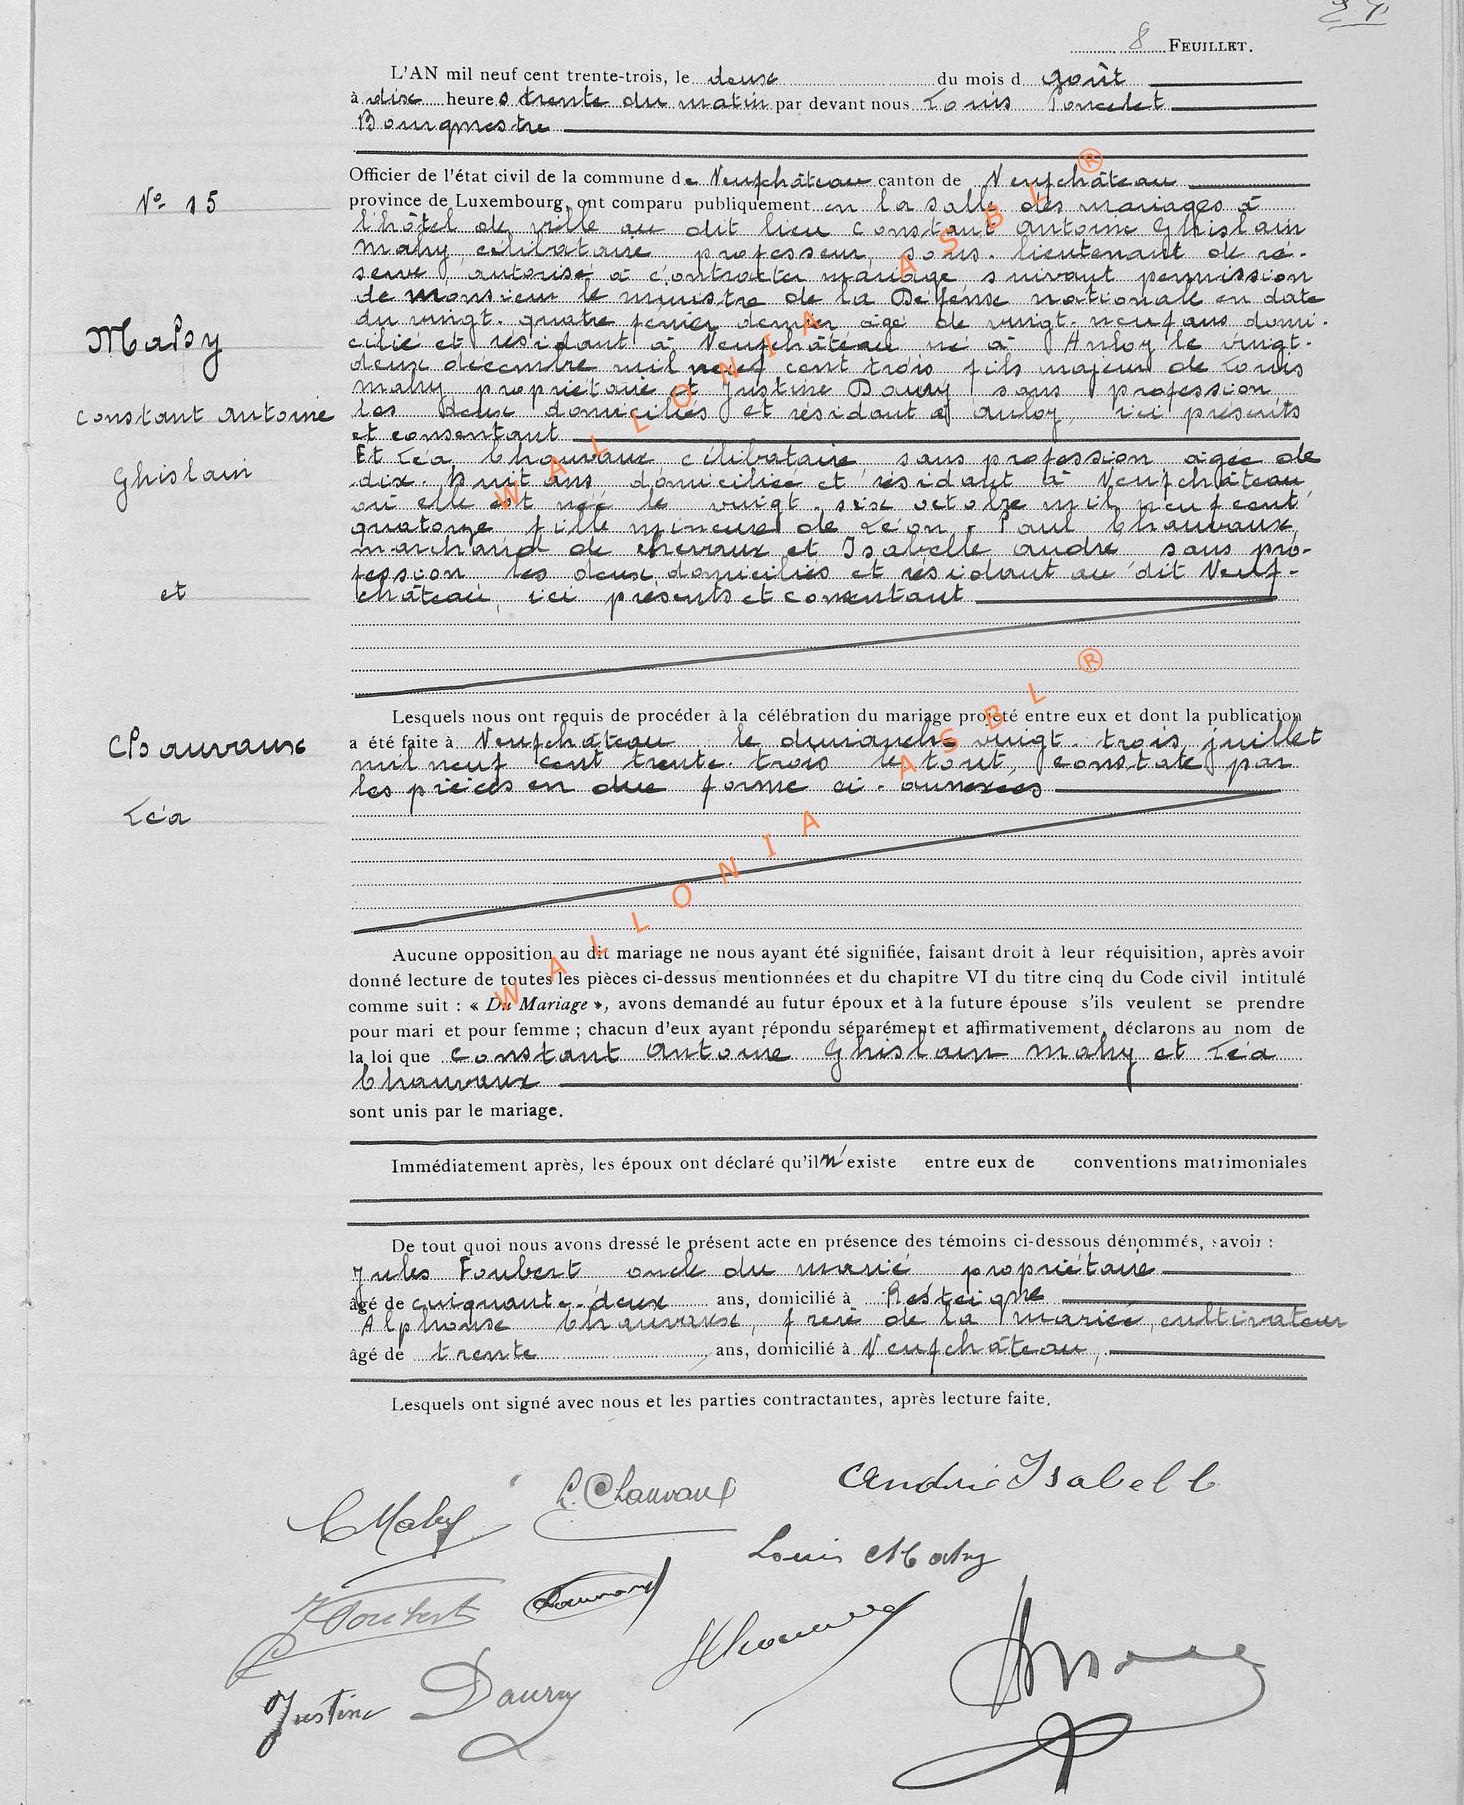 8 FEUILLET.
L'AN mil neuf cent trente-trois, le deux du mois d août
à dix heures trente du matin par devant nous Louis Poncelet
Bourgmestre
Officier de l'état civil de la commune de Neufchâteau canton de Neufchâteau
province de Luxembourg, ont comparu publiquement en la salle des mariages à
l'hôtel de ville au dit lieu Constant Antoine Ghislain
Mahy, célibataire professeur, sous-lieutenant de ré-
serve autorisé à contracter mariage suivant permission
de monsieur le ministre de la Défense nationale en date
du vingt-quatre février dernier, âgé de vingt-neuf ans domi-
cilié et résidant à Neufchâteau né à Anloy le vingt-
deux décembre mil neuf cent trois fils majeur de Louis
Mahy propriétaire et Justine Daury sans profession,
les deux domiciliés et résidant à Anloy, ici présents
et consentant
Et Léa Chauvaux célibataire sans profession âgée de
dix-huit ans domiciliée et résidant à Neufchâteau
où elle est née le vingt-six octobre mil neuf cent
quatorze fille mineure de Léon-Paul Chauvaux,
marchand de chevaux et Isabelle André sans pro-
fession les deux domiciliés et résidant au dit Neuf-
château, ici présents et consentant
Lesquels nous ont requis de procéder à la célébration du mariage projeté entre eux et dont la publication
a été faite à Neufchâteau le dimanche vingt-trois juillet
mil neuf cent trente-trois le tout, constaté par
les pièces en due forme ci-annexées
Aucune opposition au dit mariage ne nous ayant été signifiée, faisant droit à leur réquisition, après avoir
donné lecture de toutes les pièces ci-dessus mentionnées et du chapitre VI du titre cinq du Code civil intitulé
comme suit : « Du Mariage », avons demandé au futur époux et à la future épouse s'ils veulent se prendre
pour mari et pour femme ; chacun d'eux ayant répondu séparément et affirmativement, déclarons au nom de
la loi que Constant Antoine Ghislain Mahy et Léa
Chauvaux
sont unis par le mariage.
Immédiatement après, les époux ont déclaré qu'il n'existe entre eux de conventions matrimoniales
De tout quoi nous avons dressé le présent acte en présence des témoins ci-dessous dénommés, savoir :
Jules Foubert oncle du marié propriétaire
âgé de cinquante-deux ans, domicilié à Resteigne
Alphonse Chauvaux, frère de la mariée, cultivateur
âgé de trente ans, domicilié à Neufchâteau,
Lesquels ont signé avec nous et les parties contractantes, après lecture faite.
N° 15
Mahy
Constant Antoine
Ghislain
et
Chauvaux
Léa
C Mahy
L. Chauvaux
André Isabelle
Louis Mahy
J Foubert
Chauvaux
Justine Daury
WALLONIA ASBL ®
WALLONIA ASBL ®